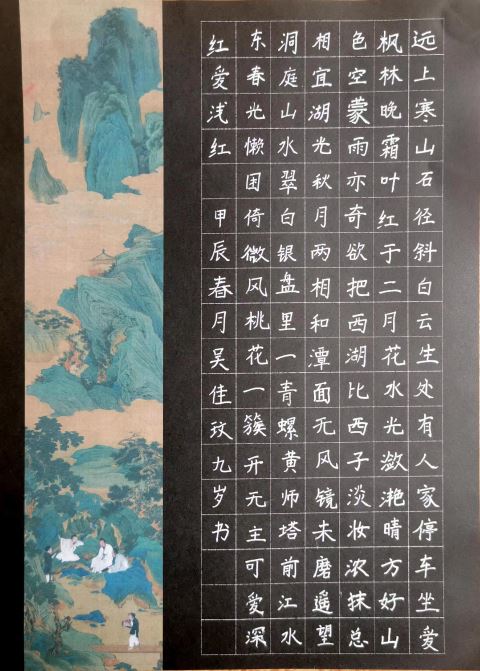 远上寒山石径斜白云生处有人家停车坐爱
枫林晚霜叶红于二月花水光潋滟晴方好山
色空蒙雨亦奇欲把西湖比西子淡妆浓抹总
相宜湖光秋月两相和潭面无风镜未磨遥望
洞庭山水翠白银盘里一青螺黄师塔前江水
东春光懒困倚微风桃花一簇开无主可爱深
红爱浅红 甲辰春月吴佳玟九岁书